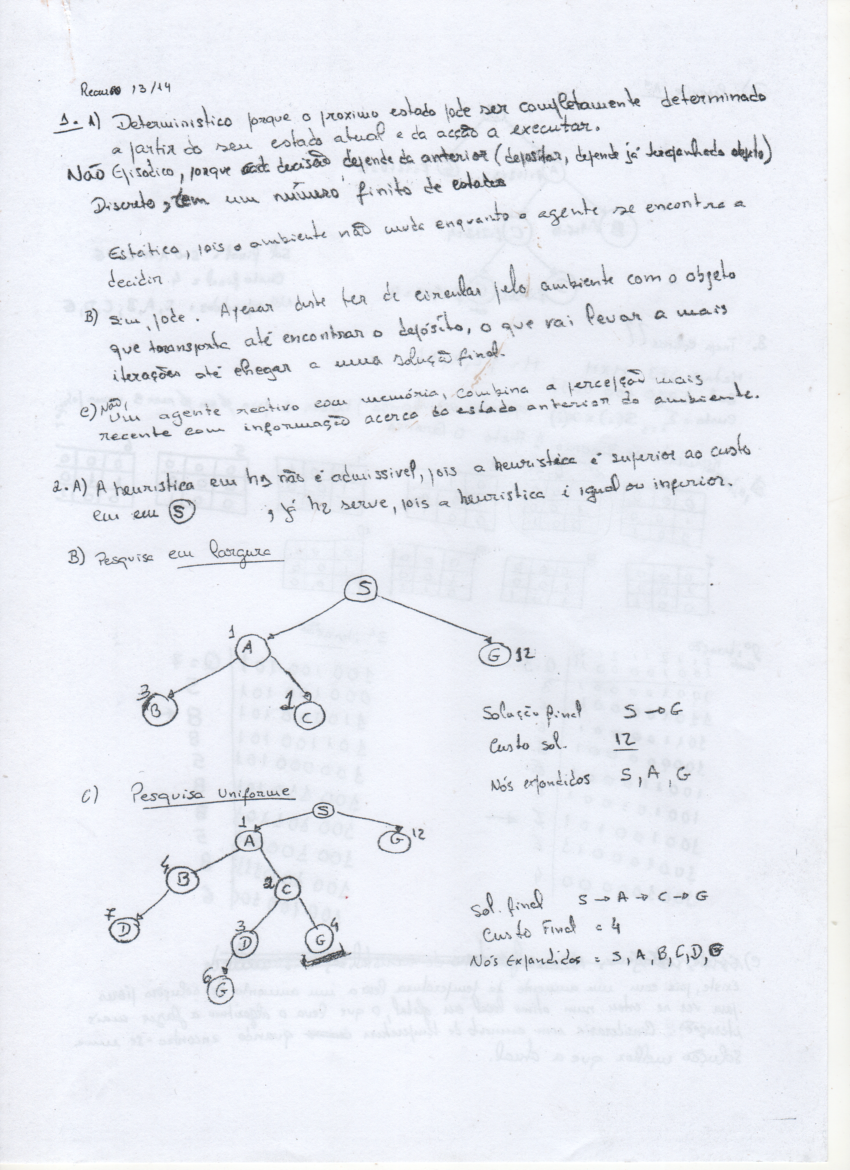 Recurso 13/14
1. A) Deterministico porque o proximo estado pode ser completamente determinado
a partir do seu estado atual e da acção a executar.
Não Episódico, porque cada decisão depende da anterior (depositar, depende já ter apanhado objeto)
Discreto, tem um número finito de estados
Estático, pois o ambiente não muda enquanto o agente se encontra a
decidir.
B) Sim, pode. Apesar deste ter de circular pelo ambiente com o objeto
que transporta até encontrar o depósito, o que vai levar a mais
iterações até chegar a uma solução final.
C) Não, Um agente reativo com memória, combina a percepção mais
recente com informação acerca do estado anterior do ambiente.
2. A) A heuristica em h1 não é admissivel, pois a heuristica é superior ao custo
em em S , já h2 serve, pois a heuristica é igual ou inferior.
B) Pesquisa em largura
S
1 A
G 12
3 B
1 C
Solução final S → G
Custo sol. 12
Nós expandidos S, A, G
C) Pesquisa Uniforme
S
1 A
G 12
4 B
2 C
7 D
3 D
G 4
6 G
Sol. final S → A → C → G
Custo Final = 4
Nós Expandidos = S, A, B, C, D, G